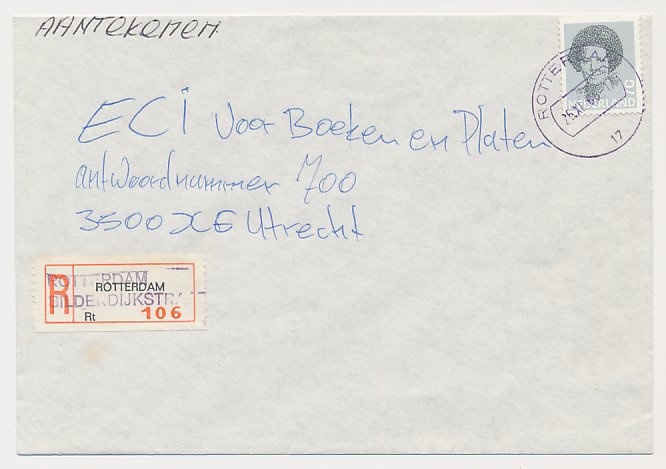 AANTEKENEN
ROTTERDAM
17
7G
NEDERLAND
ECI Voor Boeken en Platen
antwoordnummer 700
3500 XE Utrecht
R
ROTTERDAM
ROTTERDAM
BILDERDIJKSTRA
Rt
106